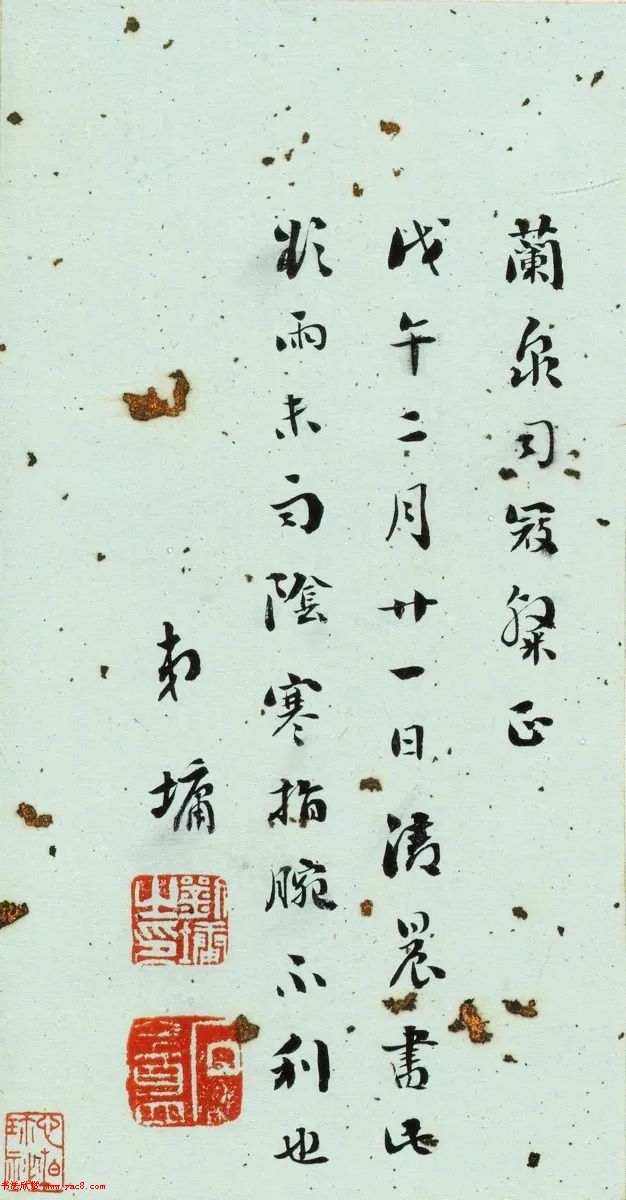 蘭泉司寇粲正
戊午二月廿一日清晨書此
欲雨未雨陰寒指腕不利也
弟墉
劉墉之印
石庵
书法欣赏 www.yac8.com